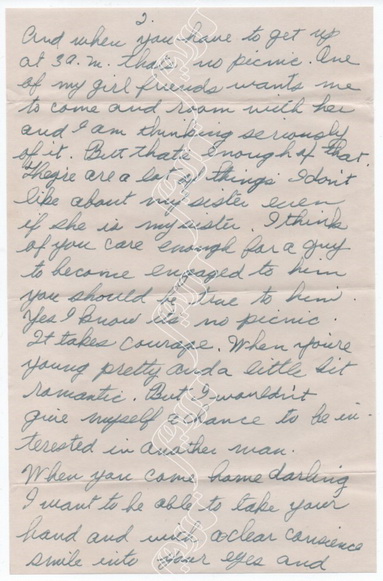 2.
And when you have to get up
at 3 a.m. thats no picnic. One
of my girl friends wants me
to come and room with her
and I am thinking seriously
of it. But thats enough of that.
They're are a lot of things I don't
like about my sister even
if she is my sister. I think
if you care enough for a guy
to become engaged to him
you should be true to him.
Yes I know its no picnic.
It takes courage. When you're
young pretty and a little bit
romantic. But I wouldn't
give myself a chance to be in-
terested in another man.
When you come home darling
I want to be able to take your
hand and with a clear consience
smile into your eyes and